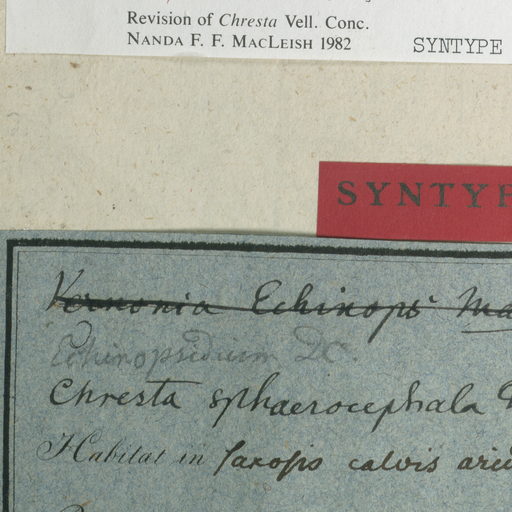 Revision of Chresta Vell. Conc.
NANDA F. F. MACLEISH 1982 SYNTYPE
SYNTYP
Vernonia Echinops Ma
Echinopsidium DC.
Chresta sphaerocephala
Habitat in saxosis calvis